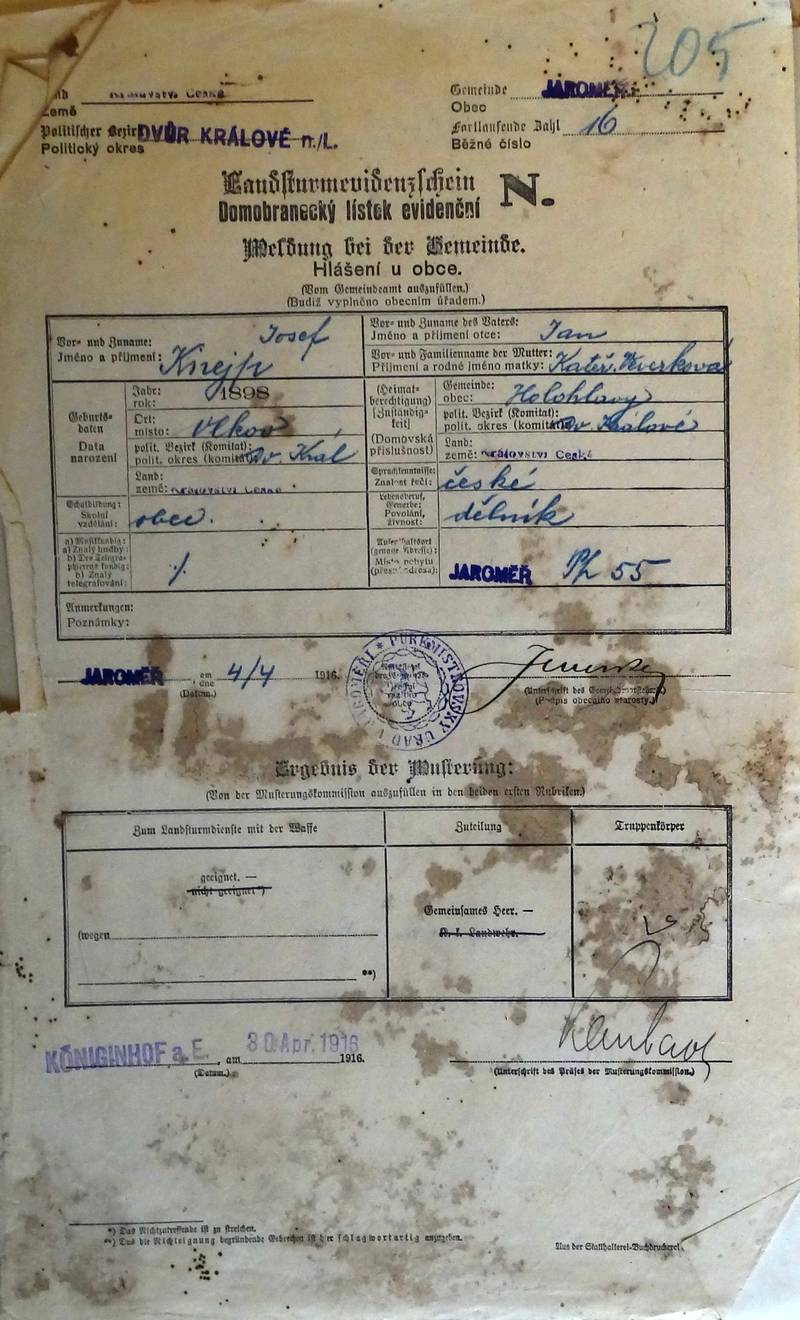 205
Gemeinde JAROMĚŘ
Země
Obec
Politischer Bezirk DVŮR KRÁLOVÉ n./L.
Fortlaufende Zahl 16
Politický okres
Běžné číslo
Landsturmevidenzschein
Domobranecký lístek evidenční N.
Meldung bei der Gemeinde.
Hlášení u obce.
(Vom Gemeindeamt auszufüllen.)
(Budiž vyplněno obecním úřadem.)
Vor- und Zuname: Josef
Jméno a příjmení:
Vor- und Zuname des Vaters: Jan
Jméno a příjmení otce:
Vor- und Familienname der Mutter:
Příjmení a rodné jméno matky: Kateř.
Geburts-
daten
Data
narození
Jahr: 1898
rok:
Ort:
místo: Vlkov
polit. Bezirk (Komitat):
polit. okres (komitát): Dv. Král
Land:
země: Království České
(Heimat-
berechtigung)
[Zuständig-
keit]
(Domovská
příslušnost)
Gemeinde:
obec: Holohlavy
polit. Bezirk (Komitat):
polit. okres (komitát): Dv. Králové
Land:
země: Království České
Schulbildung:
Školní
vzdělání: obec.
Sprachkenntnisse:
Znalost řečí: české
Lebensberuf,
Gewerbe:
Povolání,
živnost: dělník
a) Musikkundig:
a) Znalý hudby:
b) Des Telegra-
phierens kundig:
b) Znalý
telegrafování:
Aufenthaltsort
(genaue Adresse):
Místo pobytu
(přesná adresa): JAROMĚŘ 55
Anmerkungen:
Poznámky:
JAROMĚŘ, am
dne 4/4 1916.
(Datum.)
(Unterschrift des Gemeindevorstehers.)
(Podpis obecního starosty.)
PURKMISTROVSKÝ ÚŘAD
Ergebnis der Musterung:
(Von der Musterungskommission auszufüllen in den beiden ersten Rubriken.)
Zum Landsturmdienste mit der Waffe
Zuteilung
Truppenkörper
geeignet. —
nicht geeignet*)
(wegen
**)
Gemeinsames Heer. —
K. k. Landwehr.
KÖNIGINHOF a. E., am 30 Apr. 1916 1916.
(Datum.)
(Unterschrift des Präses der Musterungskommission.)
*) Das Nichtzutreffende ist zu streichen.
**) Das die Nichteignung begründende Gebrechen ist hier schlagwortartig anzugeben.
Aus der Statthalterei-Buchdruckerei.